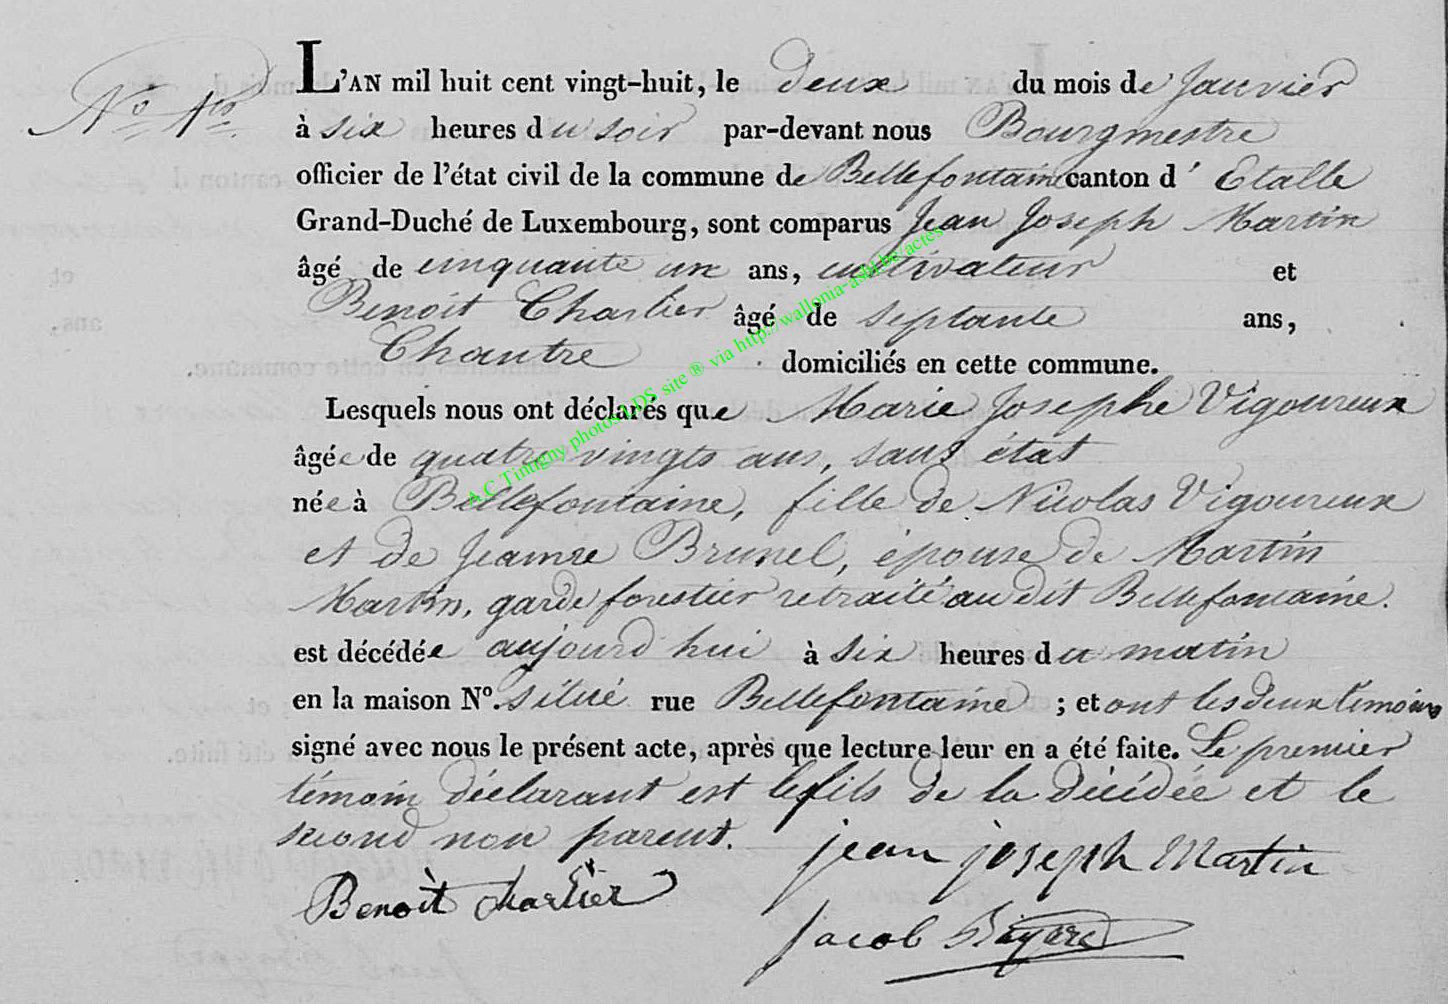 No 1er
L'AN mil huit cent vingt-huit, le deux du mois de Janvier
à six heures du soir par-devant nous Bourgmestre
officier de l'état civil de la commune de Bellefontaine canton d' Etalle
Grand-Duché de Luxembourg, sont comparus Jean Joseph Martin
âgé de cinquante un ans, cultivateur et
Benoit Charlier âgé de septante ans,
Chantre domiciliés en cette commune.
Lesquels nous ont déclarés que Marie Josephe Vigoureux
âgée de quatre vingts ans, sans état
née à Bellefontaine, fille de Nicolas Vigoureux
et de Jeanne Brunel, épouse de Martin
Martin, garde forestier retraité au dit Bellefontaine.
est décédée aujourd hui à six heures du matin
en la maison No. situé rue Bellefontaine ; et ont les deux témoins
signé avec nous le présent acte, après que lecture leur en a été faite. Le premier
témoin déclarant est le fils de la décédée et le
second non parent.
jean joseph Martin
Benoît charlier
jacob
A.C Tintigny photos LDS site ® via http://wallonia-asbl.be/actes